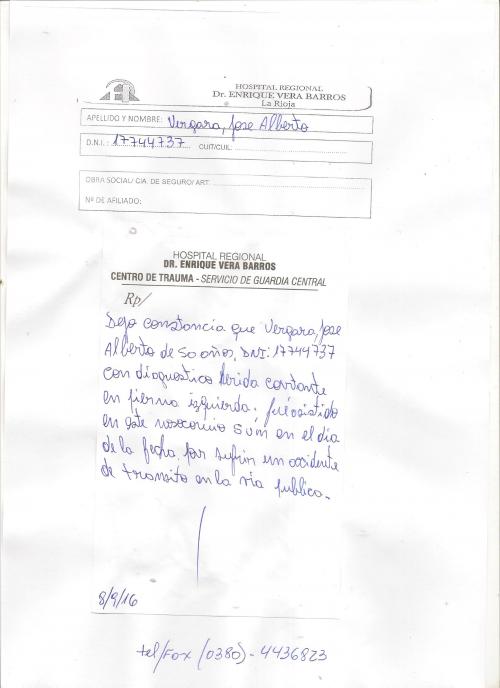 HOSPITAL REGIONAL
Dr. ENRIQUE VERA BARROS
La Rioja
APELLIDO Y NOMBRE: Vergara, Jose Alberto
D.N.I. : 17744737 CUIT/CUIL:
OBRA SOCIAL/ CIA. DE SEGURO/ ART:
Nº DE AFILIADO:
HOSPITAL REGIONAL
DR. ENRIQUE VERA BARROS
CENTRO DE TRAUMA - SERVICIO DE GUARDIA CENTRAL
Rp/
Dejo constancia que Vergara, Jose
Alberto de 50 años, DNI: 17744737
con diagnostico herida cortante
en pierna izquierda. fué asistido
en este nosocomio en el día
de la fecha, por sufrir un accidente
de transito en la via publica.
8/9/16
tel/Fax (0380) - 4436823